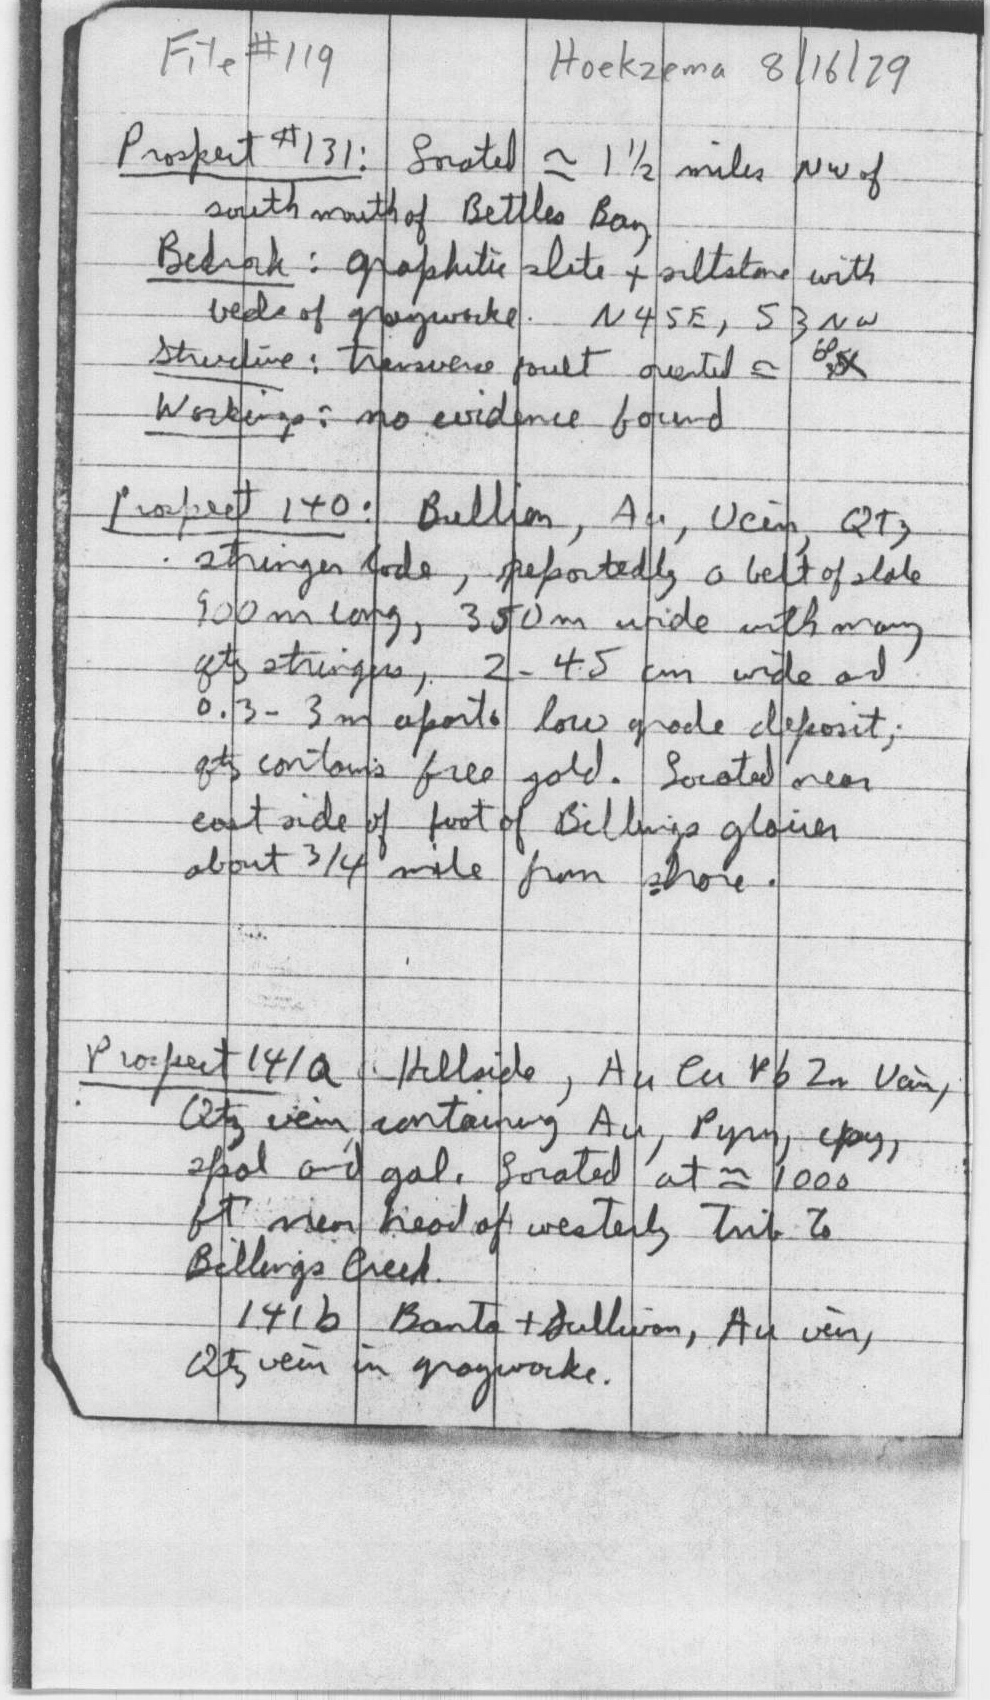 File #119 Hoekzema 8/16/79
Prospect #131: Located ≃ 1 1/2 miles NW of
south mouth of Bettles Bay
Bedrock: graphitic slate + siltstone with
beds of graywacke. N45E, 53NW
Structure: transverse fault oriented ≃
Workings: no evidence found
Prospect 140: Bullion, Au, Vein, QTz
stringer lode, reportedly a belt of slate
900m long, 350m wide with many
qtz stringers, 2-45 cm wide ad
0.3-3m apart. low grade deposit;
qtz contains free gold. Located near
east side of foot of Billings glacier
about 3/4 mile from shore.
Prospect 141a Hillside, Au Cu Pb Zn Vein,
Qtz vein, containing Au, Pyrr, cpy,
spal and gal. Located at ≃ 1000
ft near head of westerly Trib To
Billings Creek.
141b Banta + Sullivan, Au vein,
Qtz vein in graywacke.